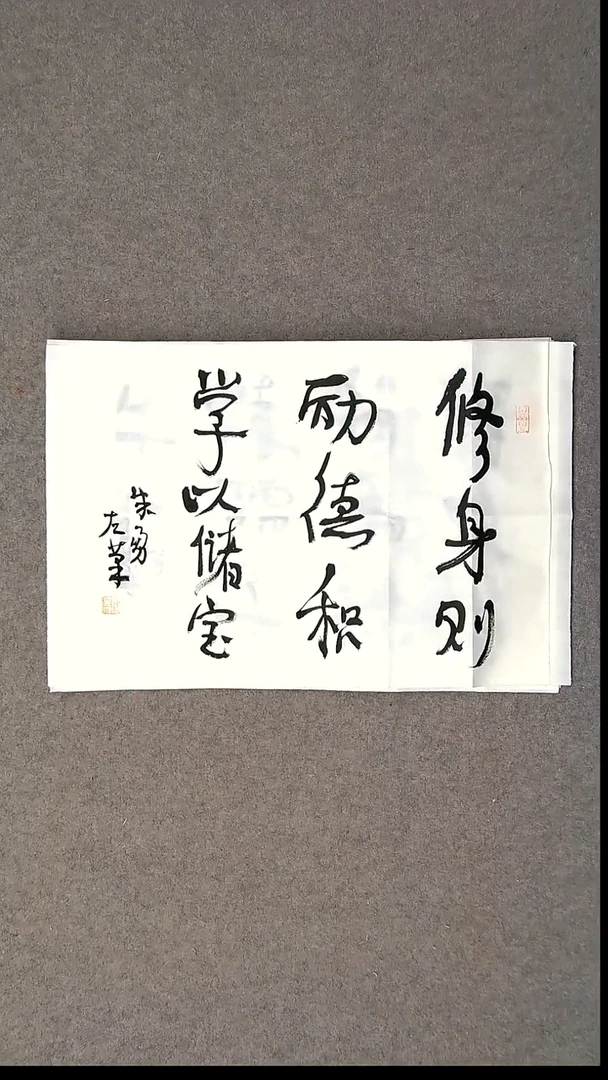 修身则
励德积
学以储宝
朱勇
左笔